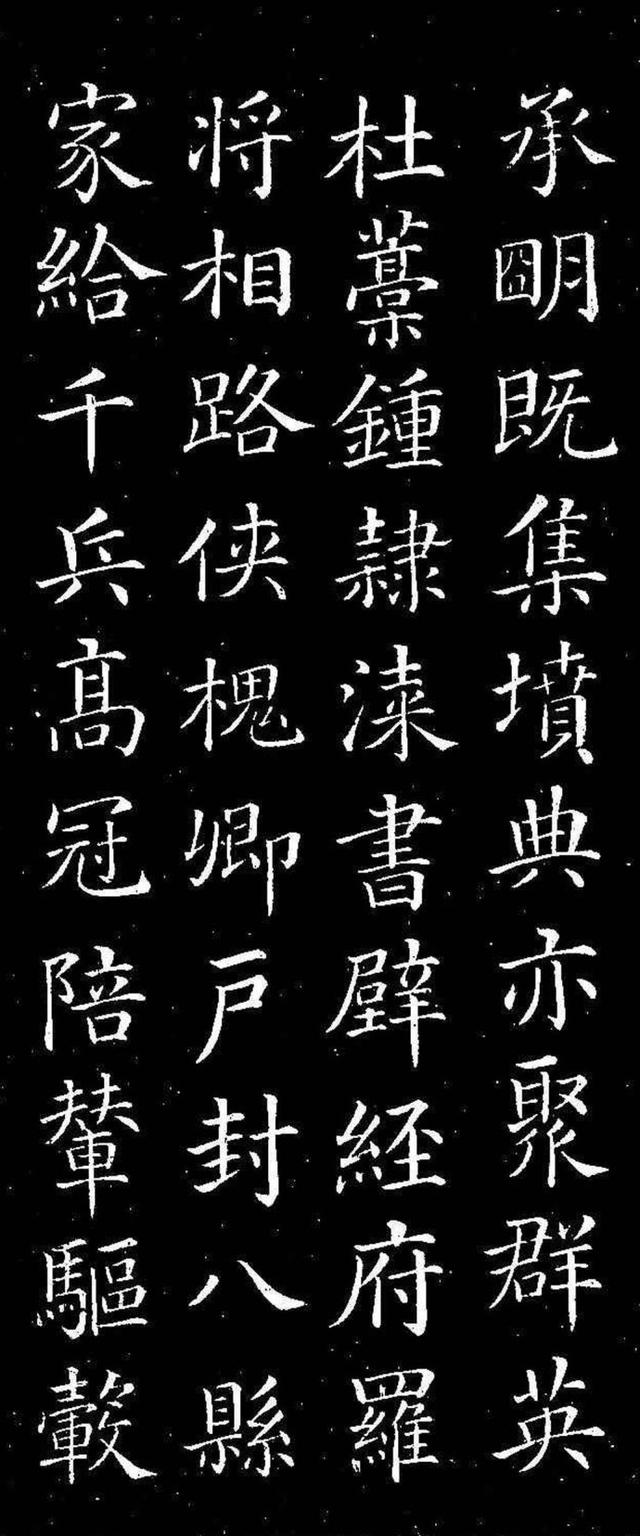 承朙既集墳典亦聚群英
杜藁鍾隸漆書壁經府羅
將相路俠槐卿戶封八縣
家給千兵高冠陪輦驅轂